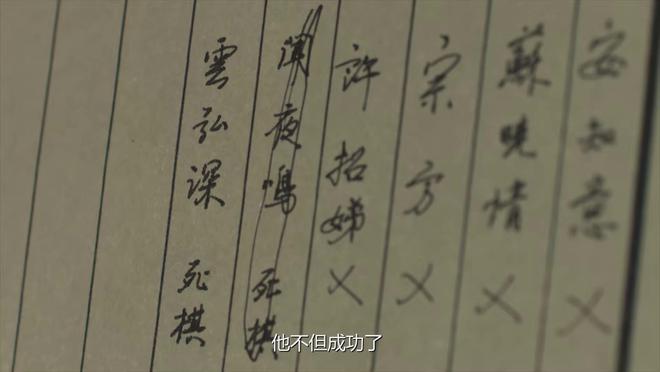 安知意 ×
蘇曉情 ×
宗方 ×
許招娣 ×
闻夜鳴 死棋
雲弘深 死棋
他不但成功了